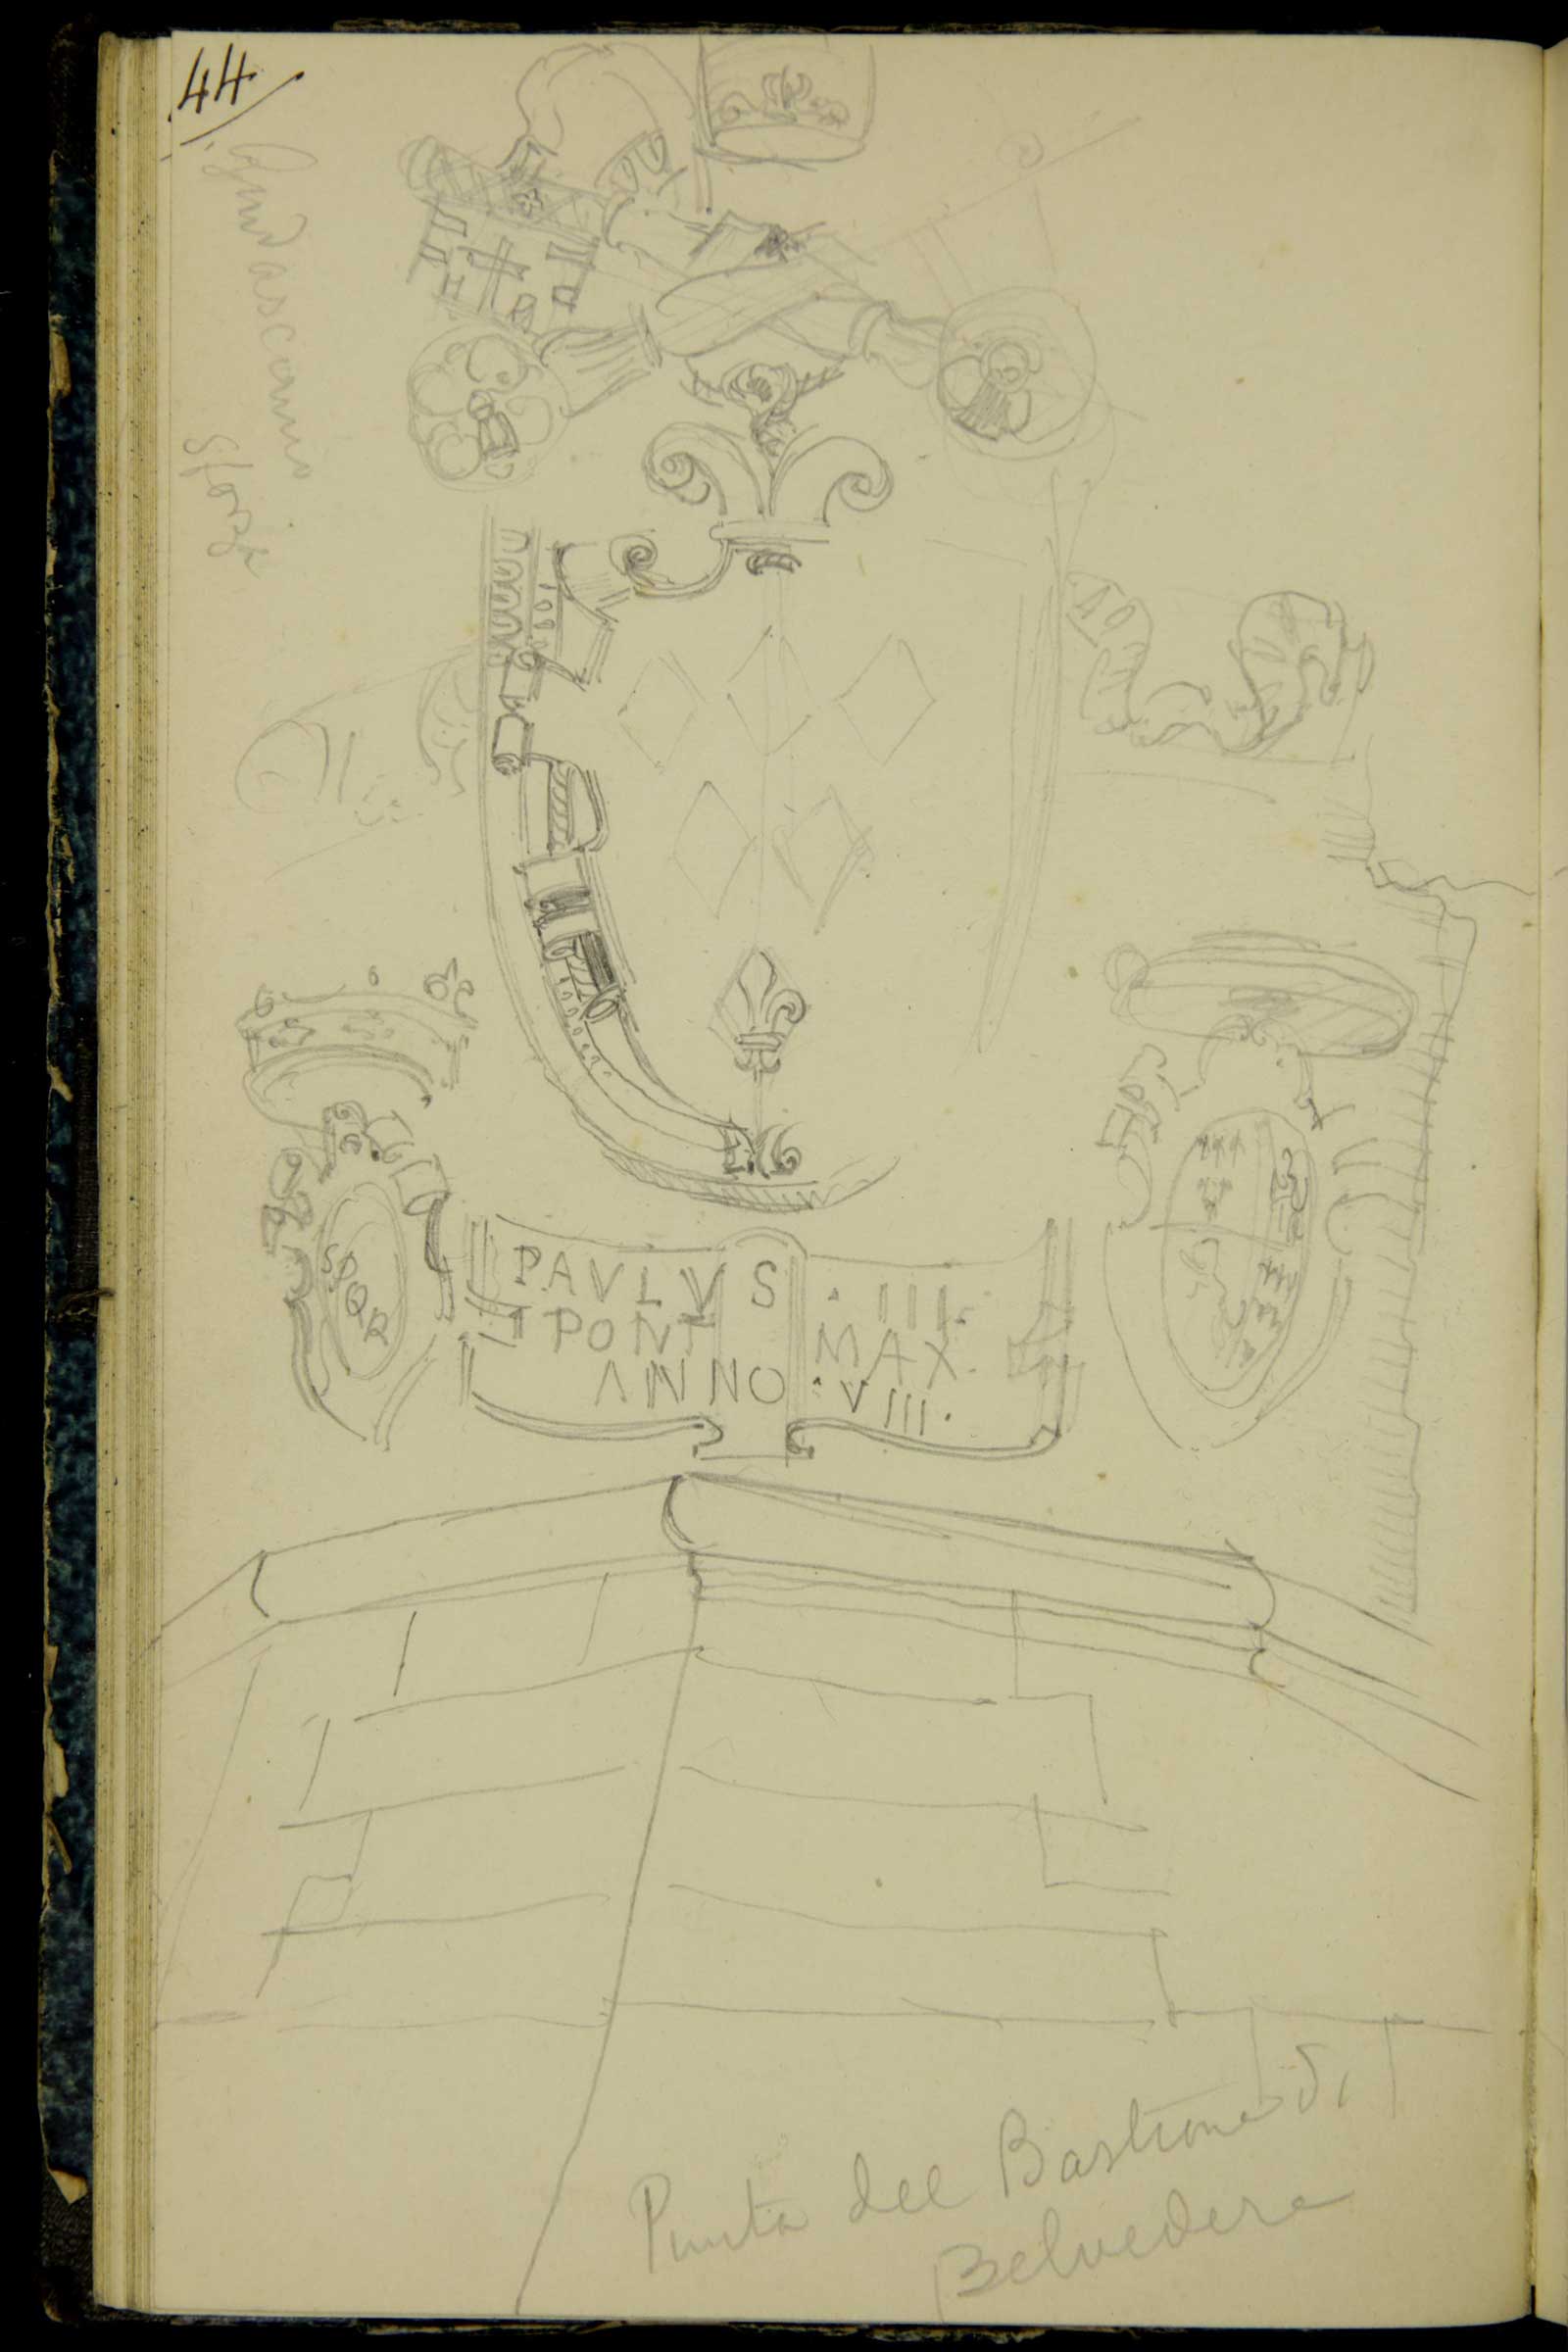 44
Guidascanio
Sforza
SPQR
PAVLVS · III ·
PONT MAX.
ANNO : VIII ·
Punta del Bastione di
Belvedere